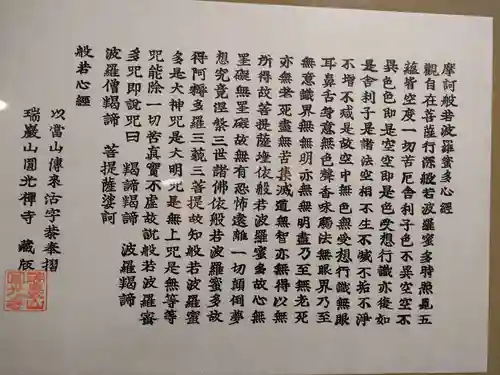 摩訶般若波羅蜜多心經
觀自在菩薩行深般若波羅蜜多時照見五
蘊皆空度一切苦厄舍利子色不異空空不
異色色即是空空即是色受想行識亦復如
是舍利子是諸法空相不生不滅不垢不淨
不增不減是故空中無色無受想行識無眼
耳鼻舌身意無色聲香味觸法無眼界乃至
無意識界無無明亦無無明盡乃至無老死
亦無老死盡無苦集滅道無智亦無得以無
所得故菩提薩埵依般若波羅蜜多故心無
罣礙無罣礙故無有恐怖遠離一切顛倒夢
想究竟涅槃三世諸佛依般若波羅蜜多故
得阿耨多羅三藐三菩提故知般若波羅蜜
多是大神咒是大明咒是無上咒是無等等
咒能除一切苦真實不虛故說般若波羅蜜
多咒即說咒曰 羯諦羯諦 波羅羯諦
波羅僧羯諦 菩提薩婆訶
般若心經
以當山傳來活字恭奉摺
瑞巖山圓光禪寺 藏版